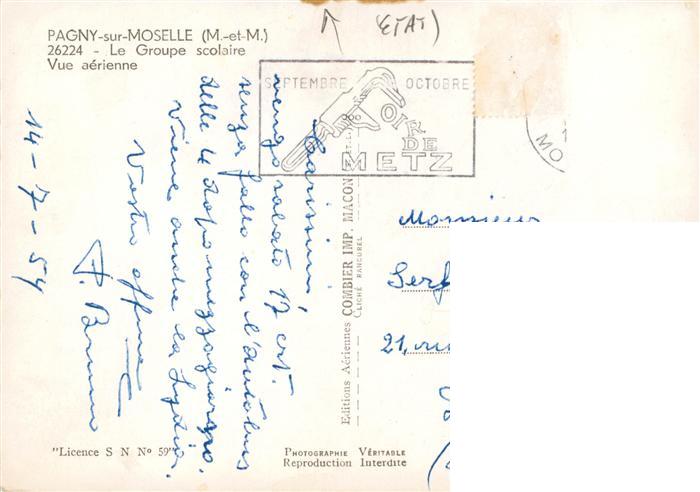 PAGNY-sur-MOSELLE (M.-et-M.)
26224 - Le Groupe scolaire
Vue aérienne
ETAT)
SEPTEMBRE OCTOBRE
FOIRE
DE
METZ
MO
14-7-54
Carissimi
vengo sabato 17 crt.
senza fallo con l'autobus
delle 4 dopo mezzogiorno.
Viene anche la Lydia.
Vostro affmo
Editions Aériennes COMBIER IMP. MACON
CLICHÉ RANCUREL
Monsieur
Serf
21, ru
"Licence S N Nº 59"
PHOTOGRAPHIE VÉRITABLE
Reproduction Interdite